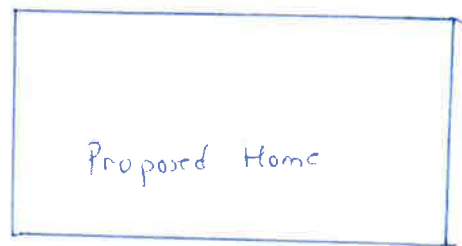 Proposed Home